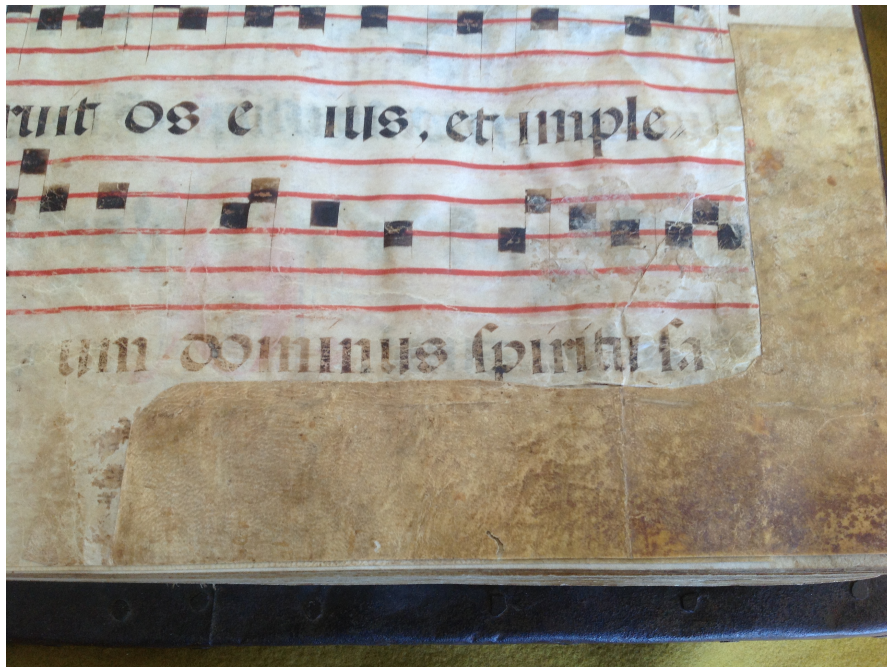 ruit os e ius, et imple„
um dominus spiritu sa